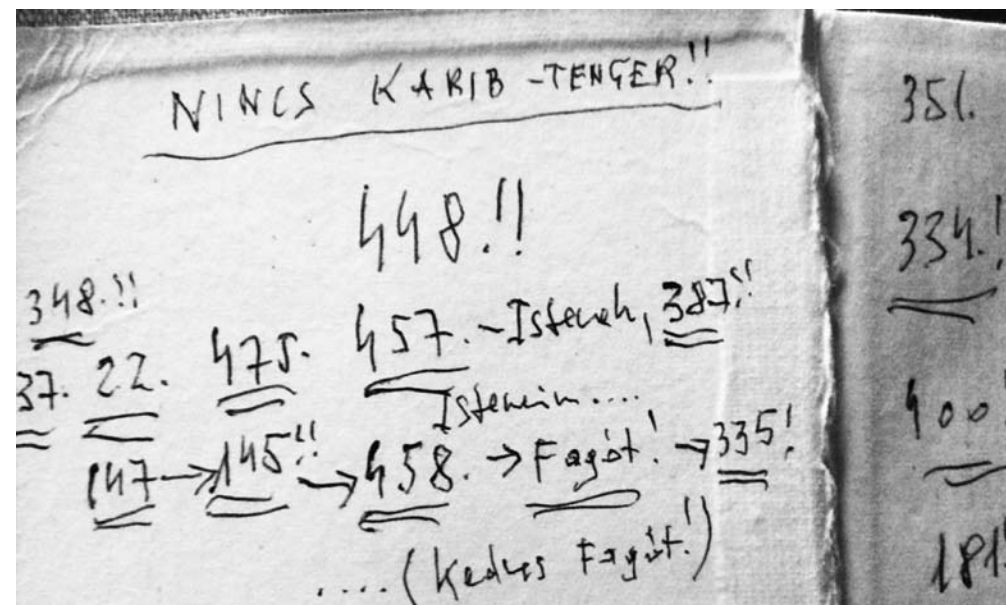 NINCS KARIB-TENGER!!
448.!!
348.!!
37. 22. 475. 457. - Istenek, 387!!
Isteneim....
147 → 145!! → 458. → Fagót! → 335!
.... (Kedves Fagót!!)
351.
334.!
400
181!